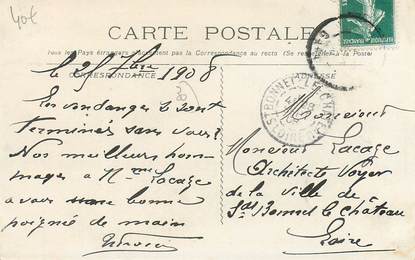 40€
CARTE POSTALE
Tous les Pays étrangers n'acceptent pas la Correspondance au recto (Se renseigner à la Poste)
CORRESPONDANCE
ADRESSE
le 25 7bre 1908
Les vendanges se sont
terminées sans vous?
Nos meilleurs hom-
mages à Mme Lacaze
à vous bonne
poignée de main
Monsieur
Monsieur Lacaze
Architecte Voyer
de la Ville de
St Bonnet le Château
Loire
ST BONNET-LE-CHATEAU
LOIRE